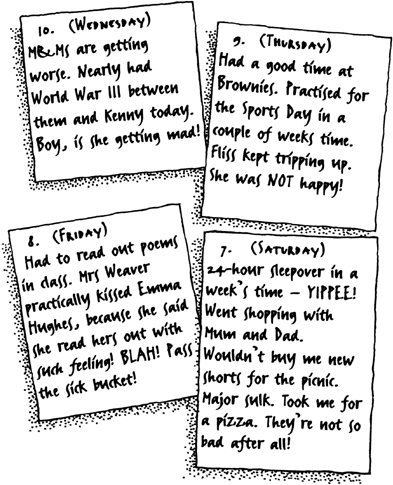 10. (WEDNESDAY)
MB&Ms are getting
worse. Nearly had
World War III between
them and Kenny today.
Boy, is she getting mad!
9. (THURSDAY)
Had a good time at
Brownies. Practised for
the Sports Day in a
couple of weeks time.
Fliss kept tripping up.
She was NOT happy!
8. (FRIDAY)
Had to read out poems
in class. Mrs Weaver
practically kissed Emma
Hughes, because she said
she read hers out with
such feeling! BLAH! Pass
the sick bucket!
7. (SATURDAY)
24-hour sleepover in a
week's time – YIPPEE!
Went shopping with
Mum and Dad.
Wouldn't buy me new
shorts for the picnic.
Major sulk. Took me for
a pizza. They're not so
bad after all!